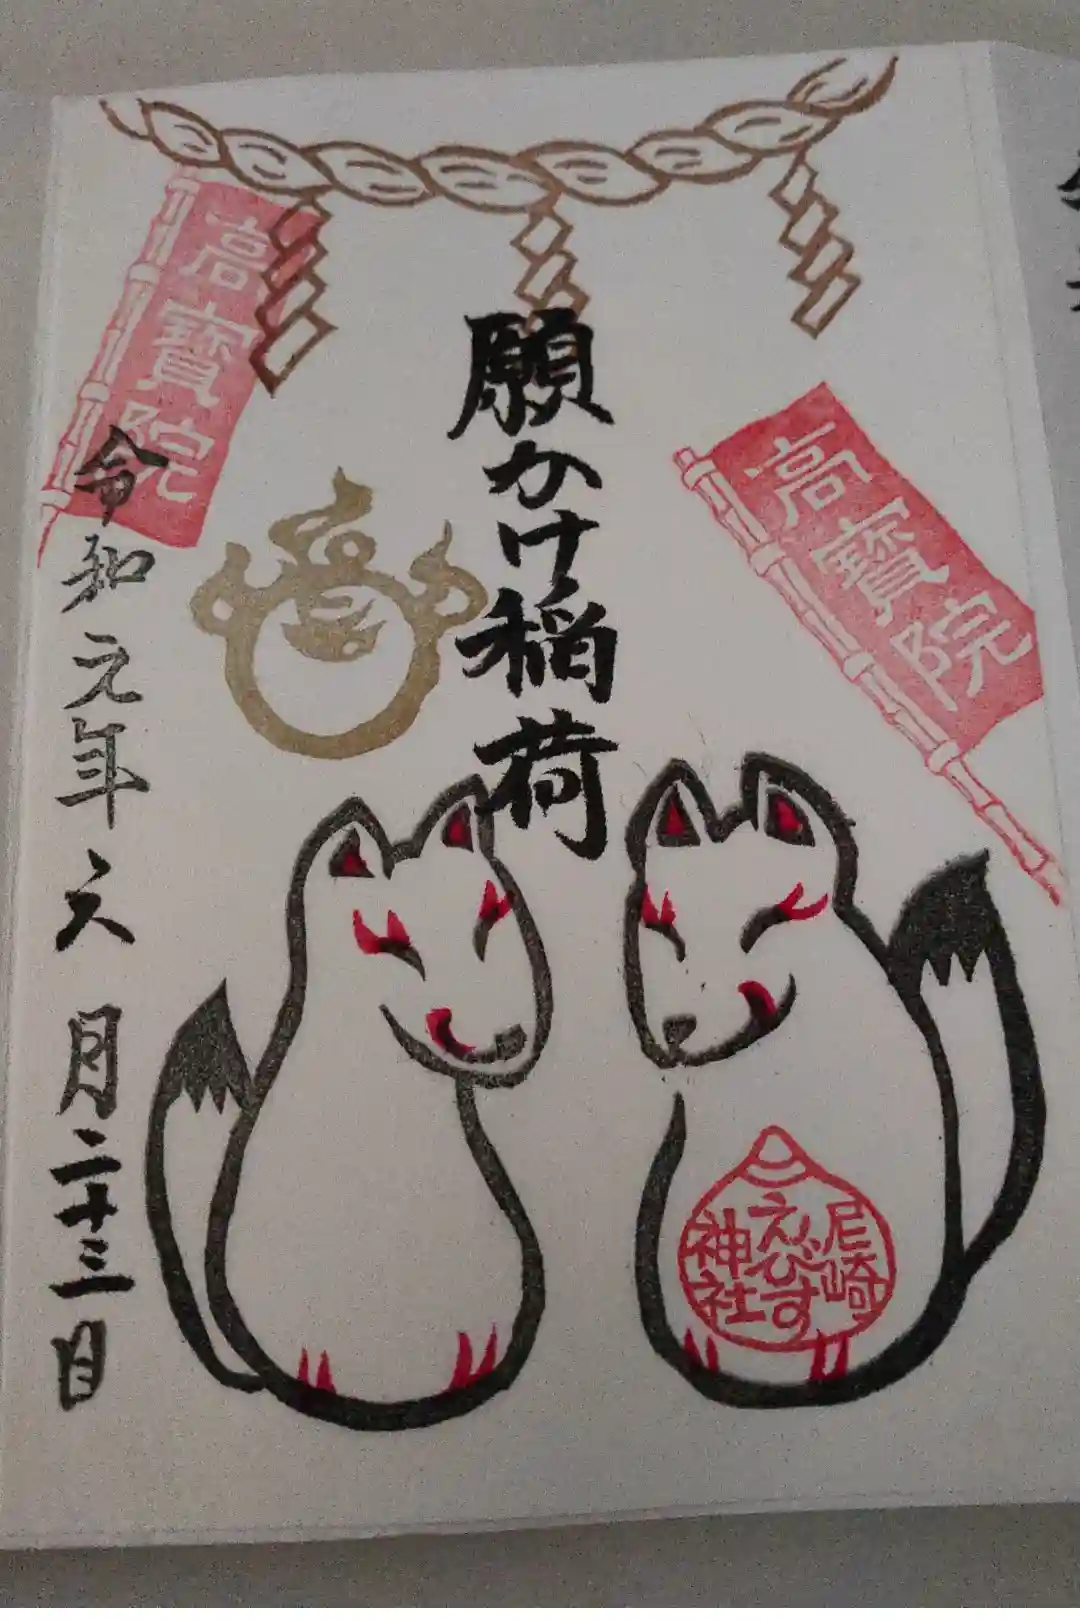 高寳院
願かけ稲荷
高寳院
令和元年六月二十三日
尼崎
えびす
神社